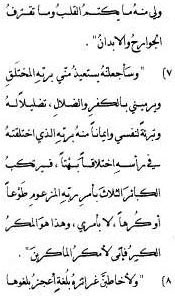 ولى منه ما يكتم القلب وما تقترف
الجوارح والأبدان" .
٧) "وسأجعلنّه يستعيذ منّي بربّه المختلق
ويرميني بالكفر والضلال، تضليلاً له
وتبرئة لنفسي وإيماناً منه بربّه الذي اختلقته
في رأسه اختلاقاً بُهْتاً، فيرتكب
الكبائر الثلاث بأمر ربّه المزعوم طَوْعاً
أو كُرهاً، لا بأمري، وهذا هو المكر
الكبير فإنّي لأمكر الماكرين" .
٨) "ولأخاطبنّ غرائزه بلغةٍ أعجز بلغوها